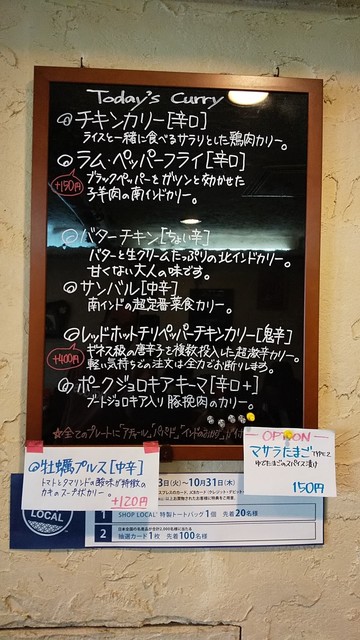 Today's Curry
チキンカリー[辛口]
ライスと一緒に食べるサラリとした鶏肉カリー。
ラム・ペッパーフライ[辛口]
+150円
ブラックペッパーをガツンと効かせた
子羊肉の南インドカリー。
バターチキン[ちょい辛]
バターと生クリームたっぷりの北インドカリー。
甘くない大人の味です。
サンバル[中辛]
南インドの超定番菜食カリー。
レッドホットチリペッパーチキンカリー[鬼辛]
+400円
ギネス級の唐辛子を複数投入した超激辛カリー。
軽い気持ちでの注文は全力でお断りします。
ポークジョロキアキーマ[辛口+]
ブートジョロキア入り豚挽肉のカリー。
☆全てのプレートに「アチャール」「パパド」
OPTION
マサラたまご
ゆでたまごのスパイス漬け
150円
牡蠣プルス[中辛]
トマトとタマリンドの酸味が特徴の
カキのスープ状カリー。
+120円
3日(火)〜10月31日(木)
LOCAL
1 SHOP LOCAL 特製トートバッグ1個 先着20名様
2 抽選カード1枚 先着100名様